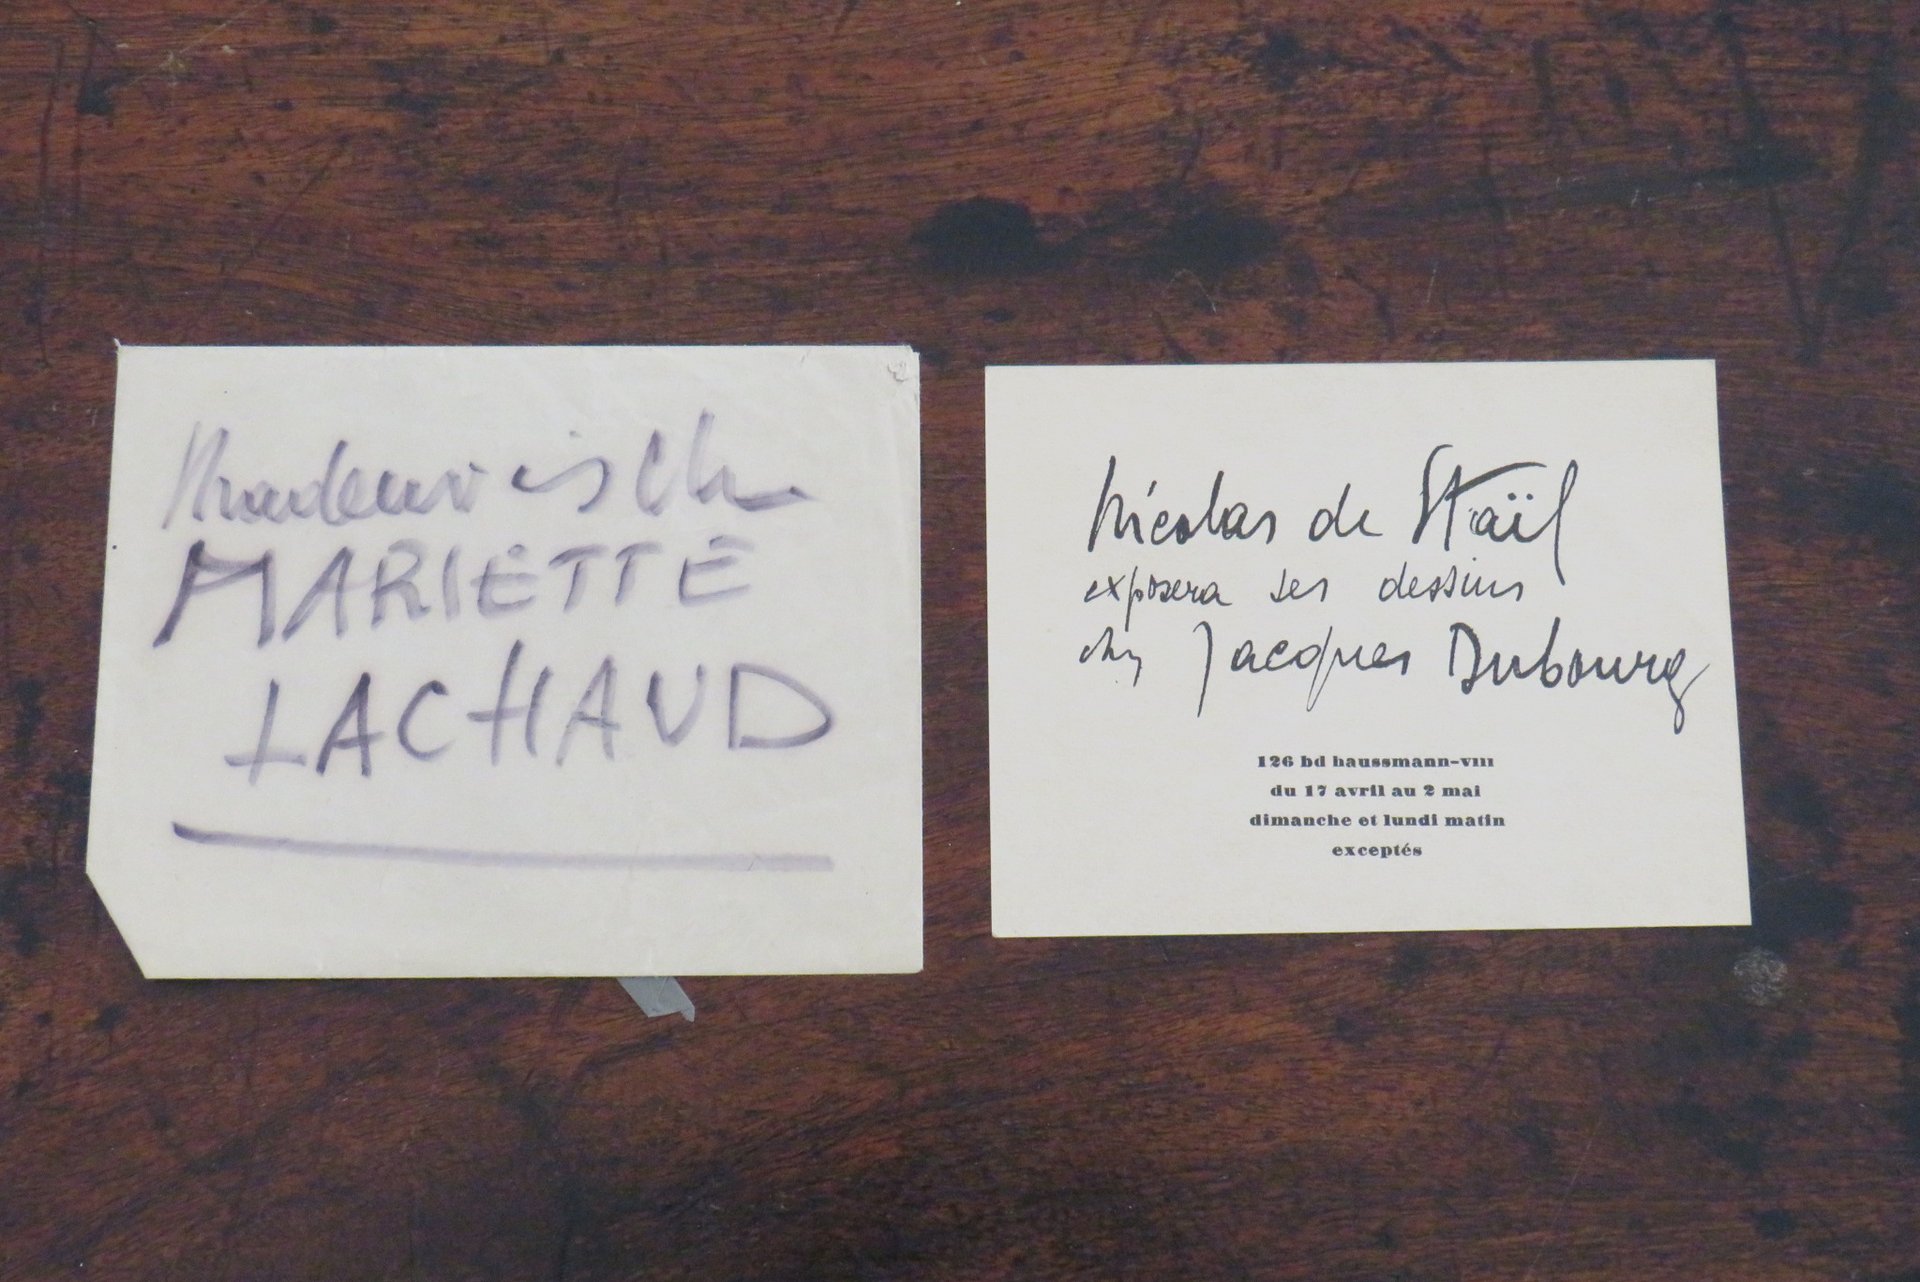 Mademoiselle
MARIETTE
LACHAUD
Nicolas de Staël
exposera ses dessins
chez Jacques Dubourg
126 bd haussmann-VIII
du 17 avril au 2 mai
dimanche et lundi matin
exceptés